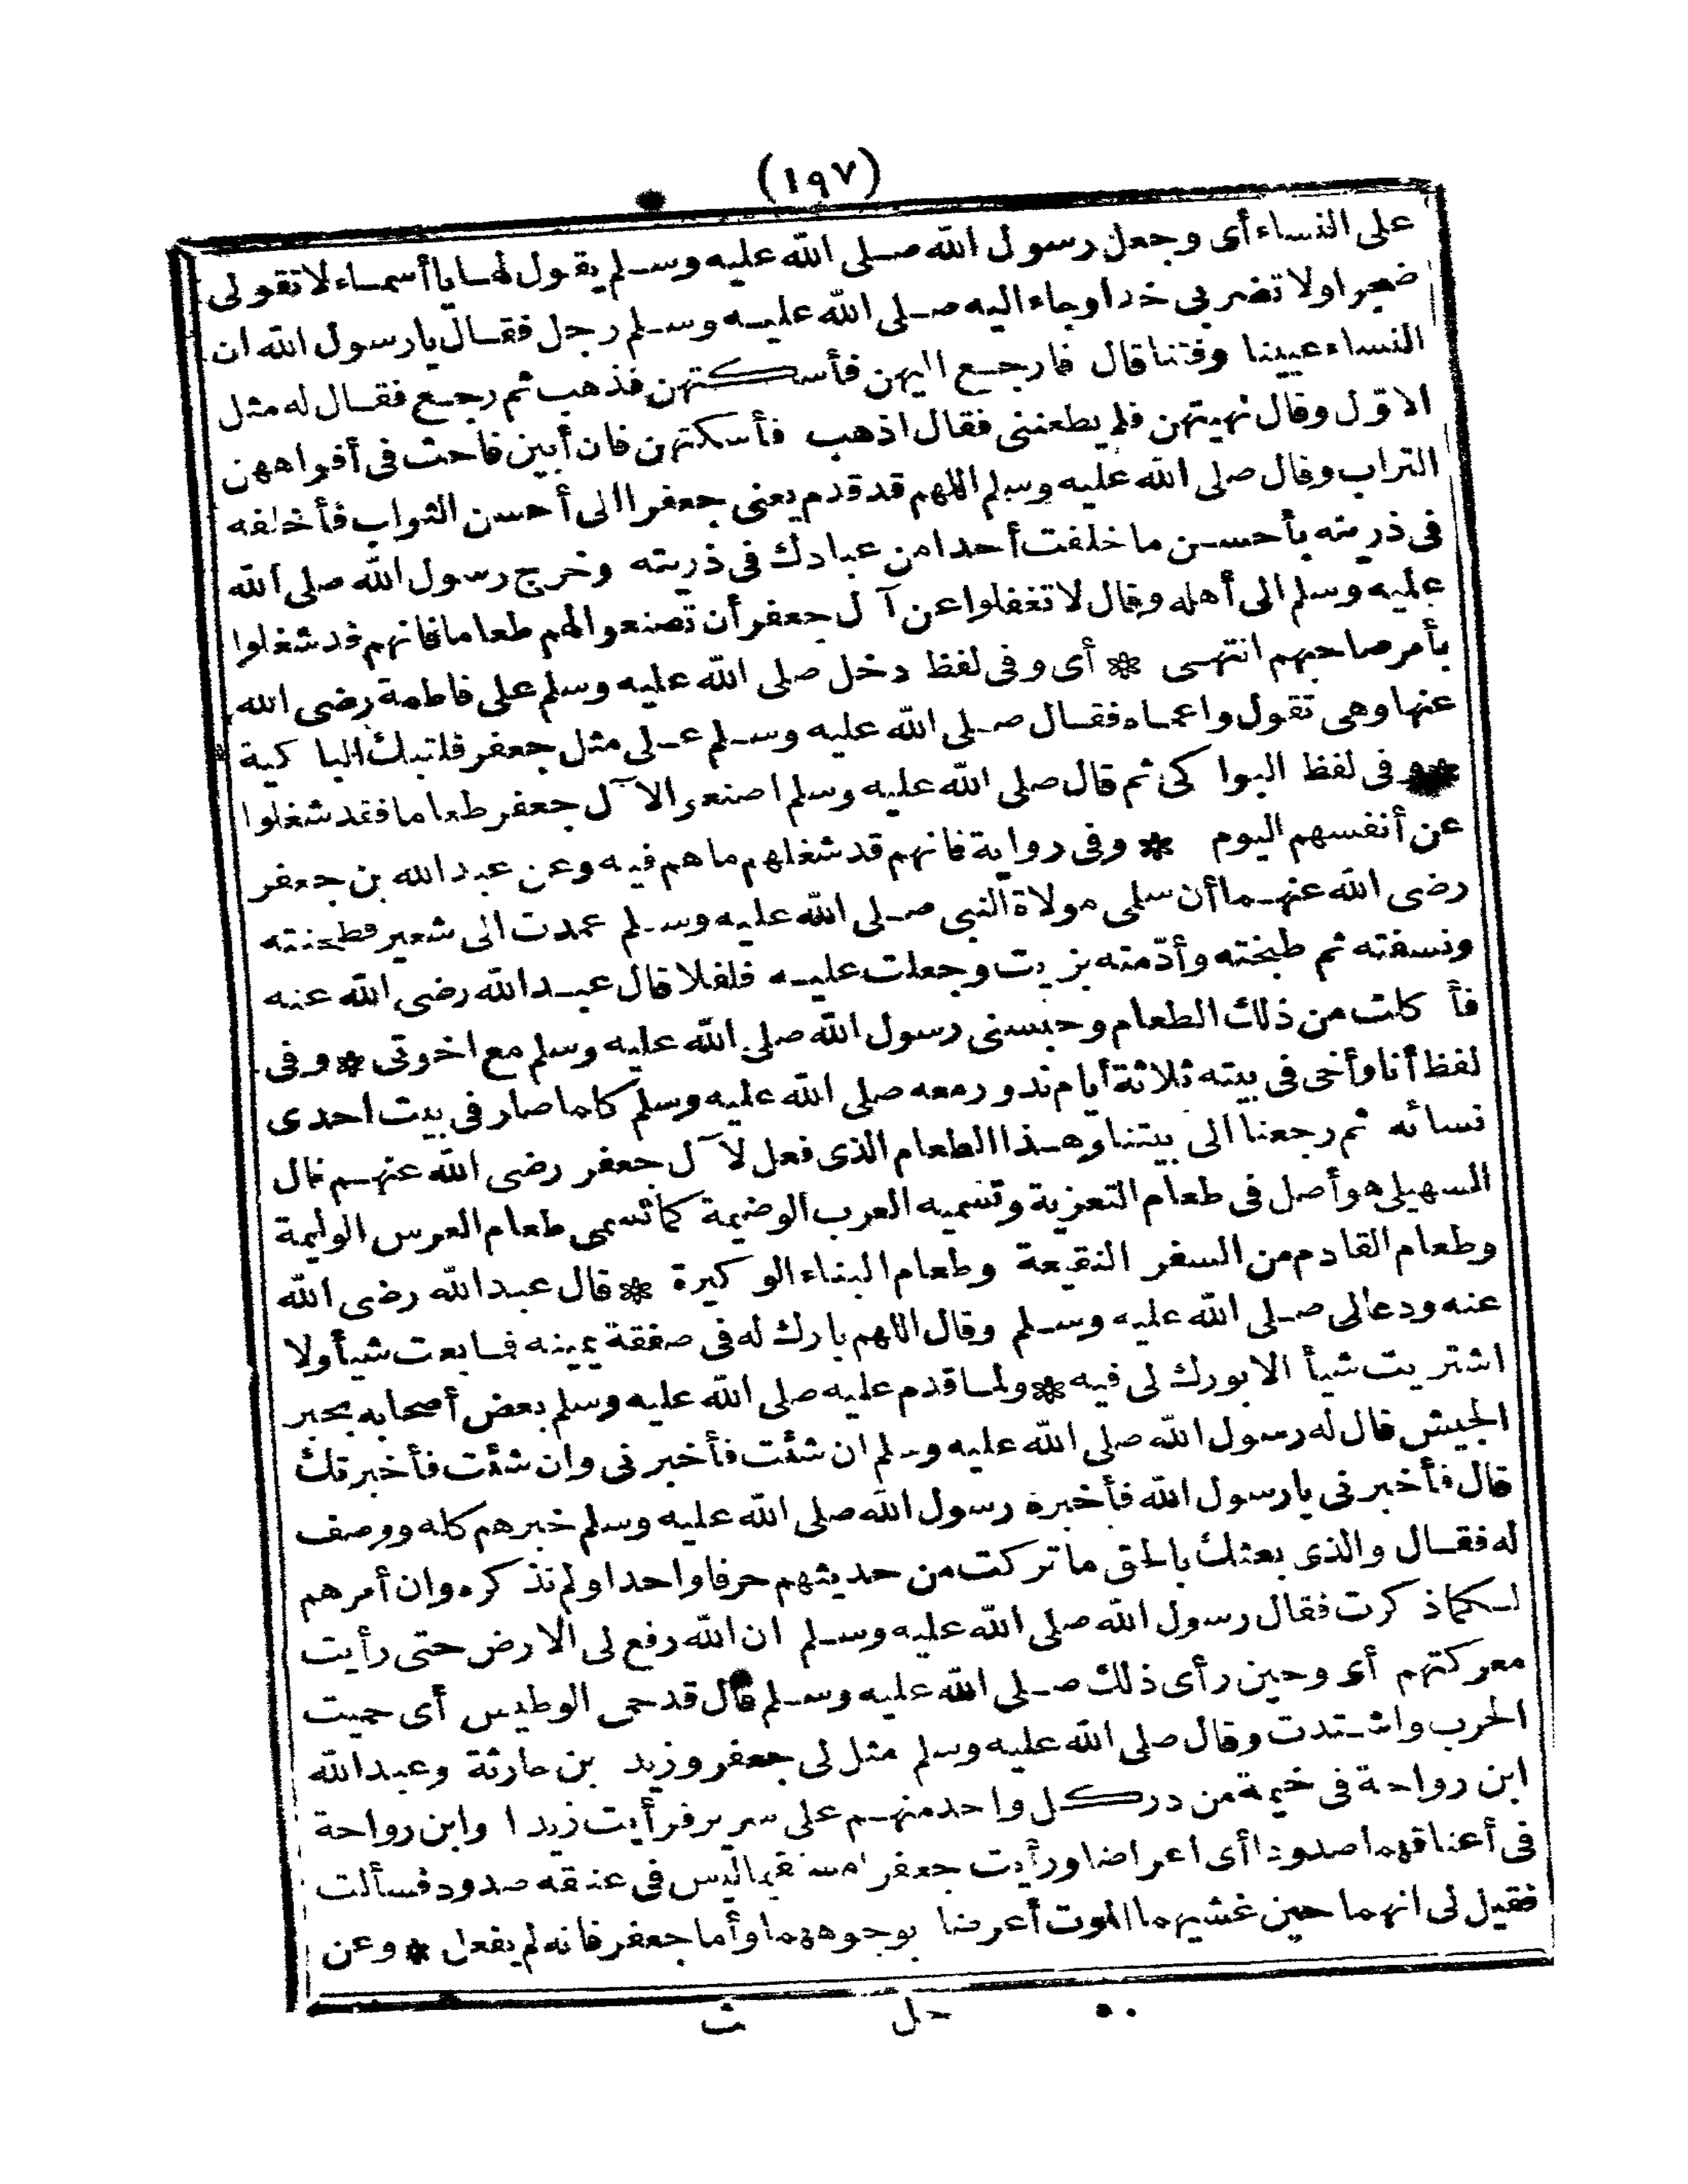 (١٩٧)
على النساء أى وجعل رسول الله صلى الله عليه وسلم يقول لها يا أسماء لا تقولى
ضجرا ولا تضربى خدا وجاء اليه صلى الله عليه وسلم رجل فقال يا رسول الله ان
النساء عيينا وفتنا قال فارجع اليهن فأسكتهن فذهب ثم رجع فقال له مثل
الاوّل وقال نهيتهن فلم يطعننى فقال اذهب فأسكتهن فان أبين فاحث فى أفواههن
التراب وقال صلى الله عليه وسلم اللهم قد قدم يعنى جعفرا الى أحسن الثواب فأخلفه
فى ذريته بأحسن ما خلفت أحدا من عبادك فى ذريته وخرج رسول الله صلى الله
عليه وسلم الى أهله وقال لا تغفلوا عن آل جعفر أن تصنعوا لهم طعاما فانهم قد شغلوا
بأمر صاحبهم انتهى * أى وفى لفظ دخل صلى الله عليه وسلم على فاطمة رضى الله
عنها وهى تقول واعماه فقال صلى الله عليه وسلم على مثل جعفر فلتبك الباكية
* وفى لفظ البواكى ثم قال صلى الله عليه وسلم اصنعوا لآل جعفر طعاما فقد شغلوا
عن أنفسهم اليوم * وفى رواية فانهم قد شغلهم ما هم فيه وعن عبد الله بن جعفر
رضى الله عنهما أن سلمى مولاة النبى صلى الله عليه وسلم عمدت الى شعير فطحنته
ونسفته ثم طبخته وأدّمته بزيت وجعلت عليه فلفلا قال عبد الله رضى الله عنه
فأكلت من ذلك الطعام وحبسنى رسول الله صلى الله عليه وسلم مع اخوتى * وفى
لفظ أنا وأخى فى بيته ثلاثة أيام ندور معه صلى الله عليه وسلم كلما صار فى بيت احدى
نسائه ثم رجعنا الى بيتنا وهذا الطعام الذى فعل لآل جعفر رضى الله عنهم قال
السهيلى هو أصل فى طعام التعزية وتسميه العرب الوضيمة كما تسمى طعام العرس الوليمة
وطعام القادم من السفر النقيعة وطعام البناء الوكيرة * قال عبد الله رضى الله
عنه ودعا لى صلى الله عليه وسلم وقال اللهم بارك له فى صفقة يمينه فما بعت شيأ ولا
اشتريت شيأ الا بورك لى فيه * ولما قدم عليه صلى الله عليه وسلم بعض أصحابه بخبر
الجيش قال له رسول الله صلى الله عليه وسلم ان شئت فأخبرنى وان شئت فأخبرتك
قال فأخبرنى يا رسول الله فأخبره رسول الله صلى الله عليه وسلم خبرهم كله ووصف
له فقال والذى بعثك بالحق ما تركت من حديثهم حرفا واحدا ولم تذكره وان أمرهم
لكما ذكرت فقال رسول الله صلى الله عليه وسلم ان الله رفع لى الارض حتى رأيت
معركتهم أى وحين رأى ذلك صلى الله عليه وسلم قال قد حمى الوطيس أى حميت
الحرب واشتدت وقال صلى الله عليه وسلم مثل لى جعفر وزيد بن حارثة وعبد الله
ابن رواحة فى خيمة من در كل واحد منهم على سرير فرأيت زيدا وابن رواحة
فى أعناقهما صدودا أى اعراضا ورأيت جعفرا مستقيما ليس فى عنقه صدود فسألت
فقيل لى انهما حين غشيهما الموت أعرضا بوجوههما وأما جعفر فانه لم يفعل * وعن
حل ث